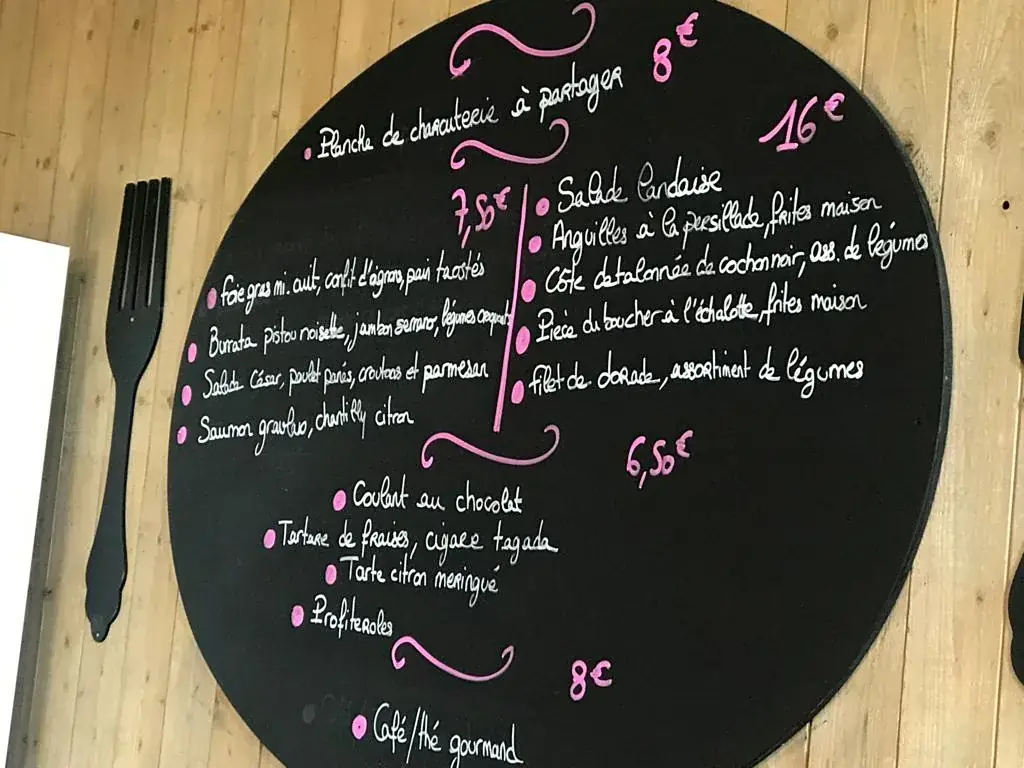 8€
• Planche de charcuterie à partager
7,50€
• Foie gras mi-cuit, confit d'oignons, pain toastés
• Burrata pistou noisette, jambon serrano, légumes croquants
• Salade César, poulet panés, croutons et parmesan
• Saumon gravlax, chantilly citron
16€
• Salade Landaise
• Anguilles à la persillade, frites maison
• Côte detalonnée de cochon noir, ass. de légumes
• Pièce du boucher à l'échalotte, frites maison
• Filet de dorade, assortiment de légumes
6,50€
• Coulant au chocolat
• Tartare de fraises, cigare tagada
• Tarte citron meringué
• Profiteroles
8€
• Café/thé gourmand